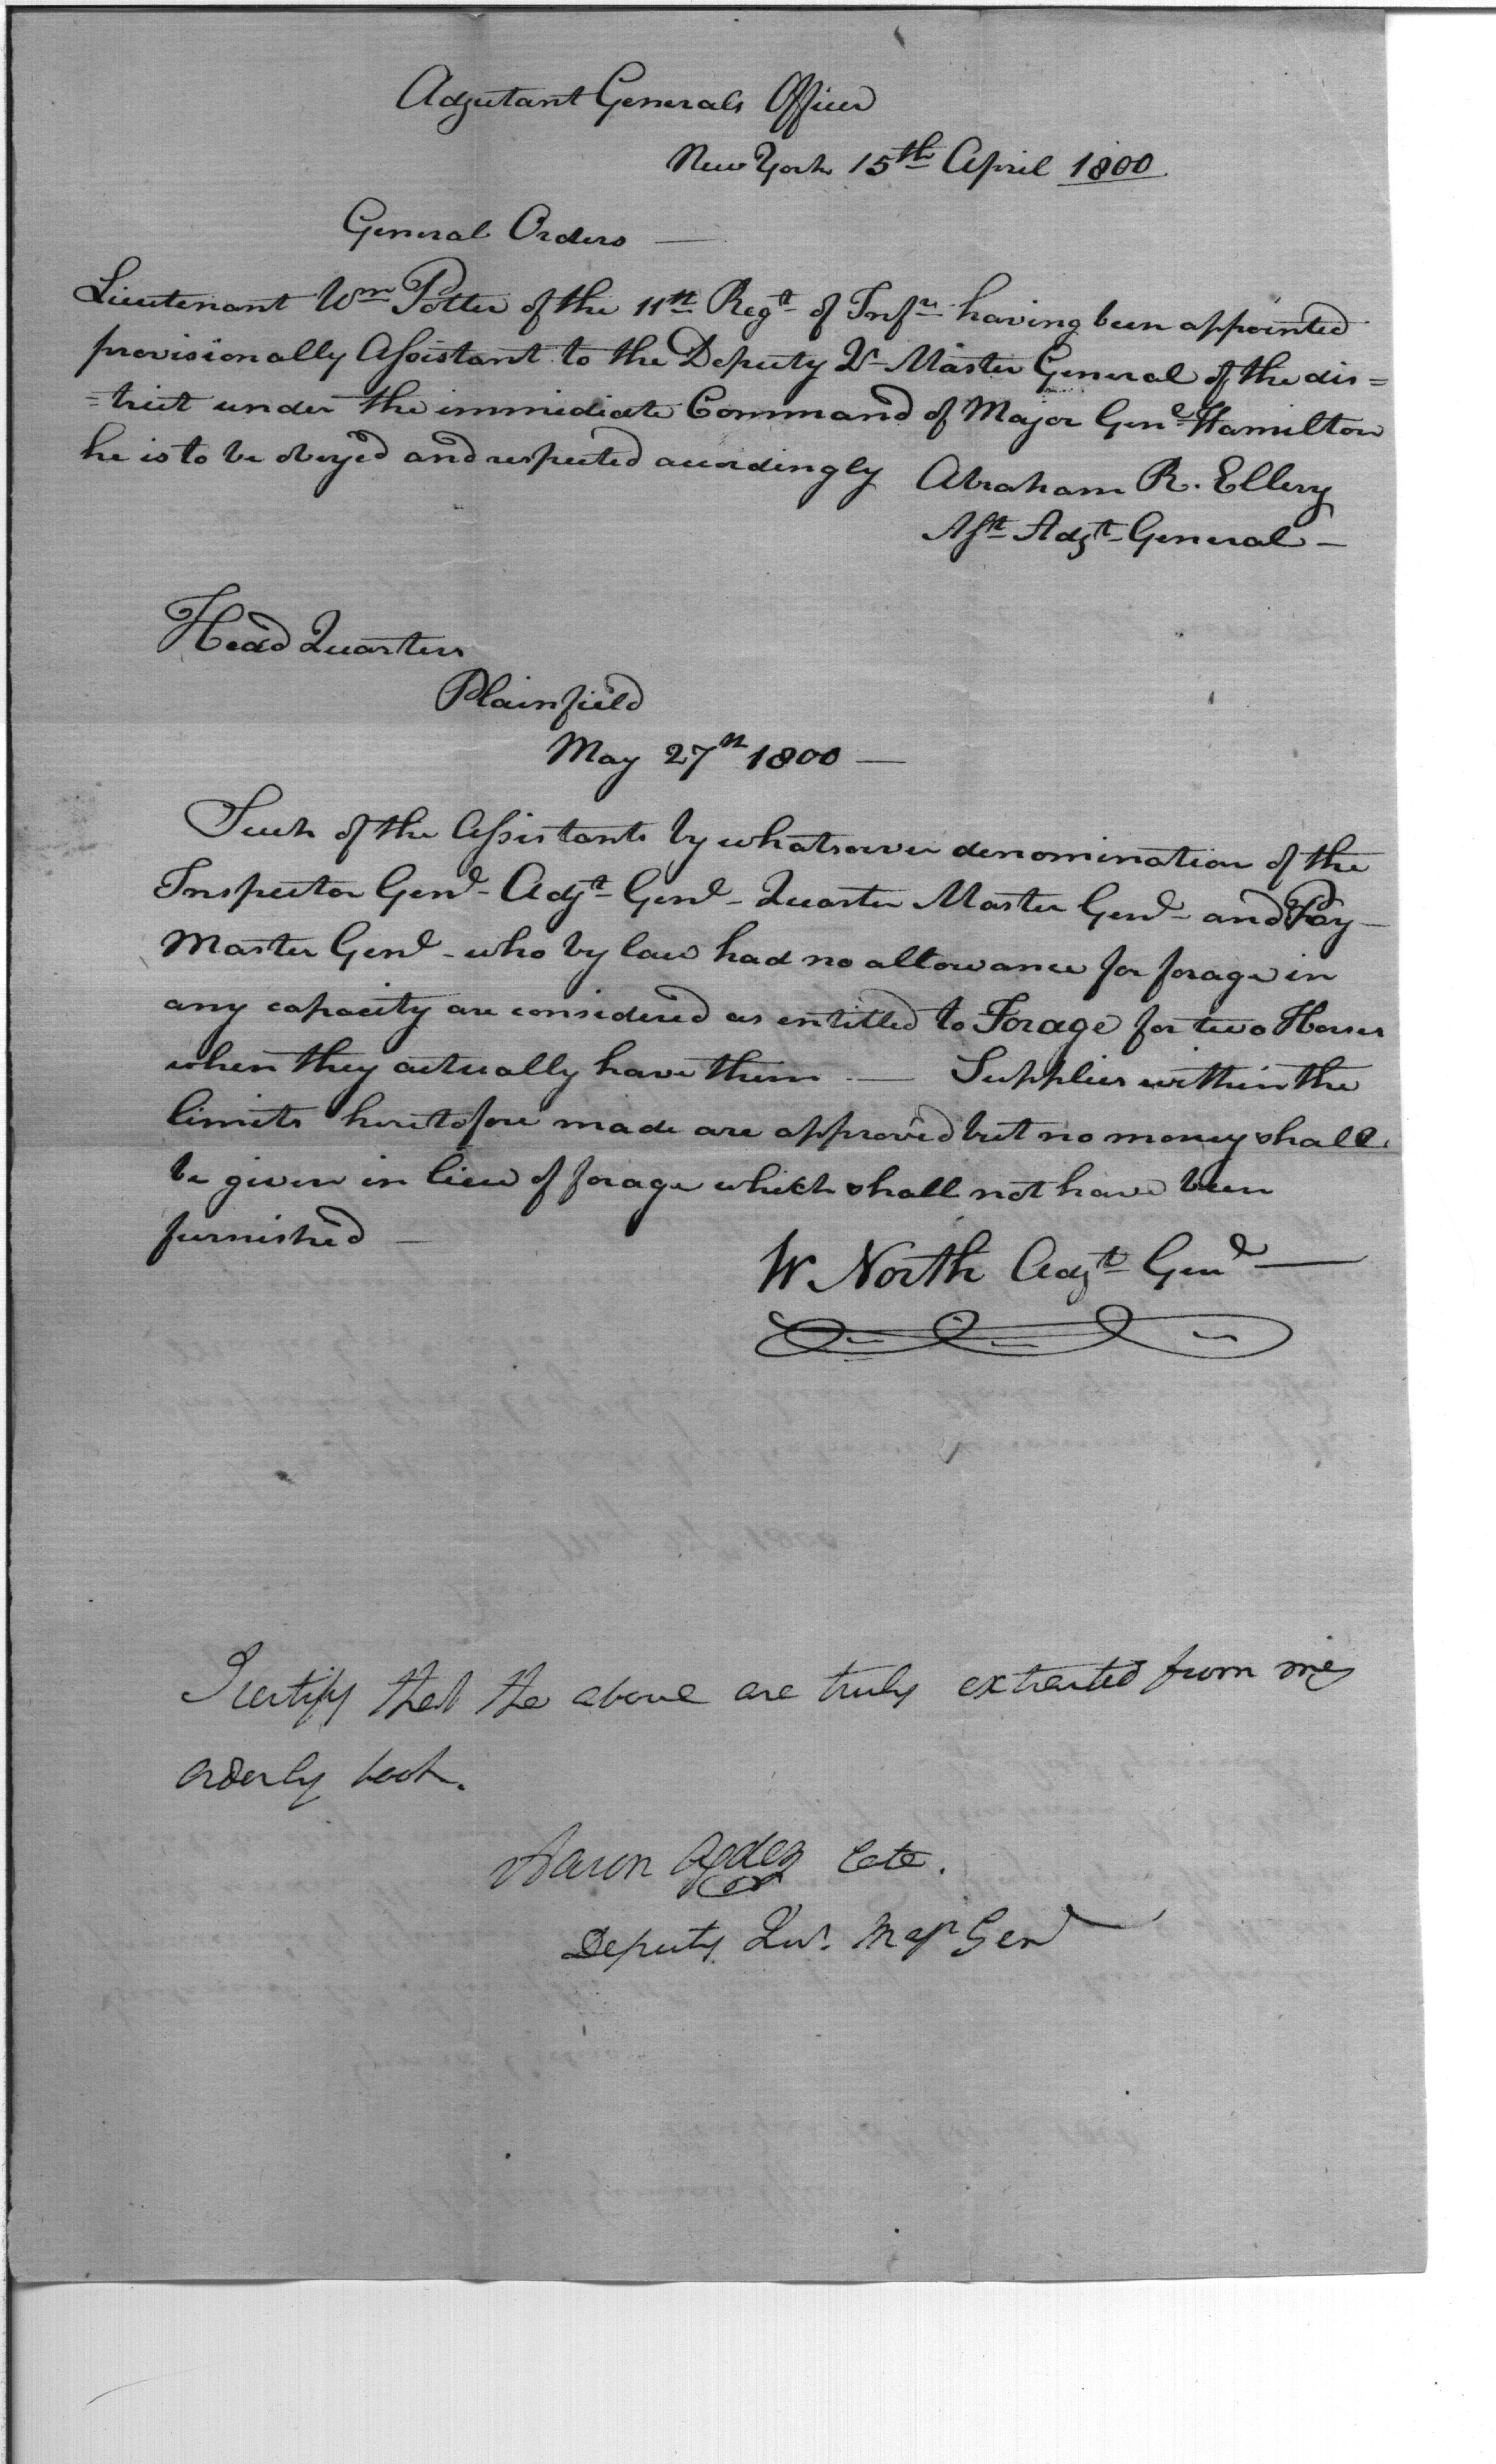 Adjutant Generals Office
New York 15th April 1800
General Orders —
Lieutenant Wm Potter of the 11th Regt of Infy having been appointed
provisionally Assistant to the Deputy Qr Master General of the dis=
=trict under the immediate Command of Major Genl Hamilton
he is to be obeyed and respected accordingly
Abraham R. Ellery
Asst Adjt General —
Head Quarters
Plainfield
May 27th 1800 —
Such of the Assistants by whatsoever denomination of the
Inspector Genl - Adjt Genl - Quarter Master Genl - and Pay—
Master Genl - who by law had no allowance for forage in
any capacity are considered as entitled to Forage for two Horses
when they actually have them — Supplies within the
limits heretofore made are approved but no money shall
be given in lieu of forage which shall not have been
furnished —
W North Adjt Genl —
I certify that the above are truly extracted from my
orderly book.
Aaron Ogden late.
Deputy Qur. Mar Gen